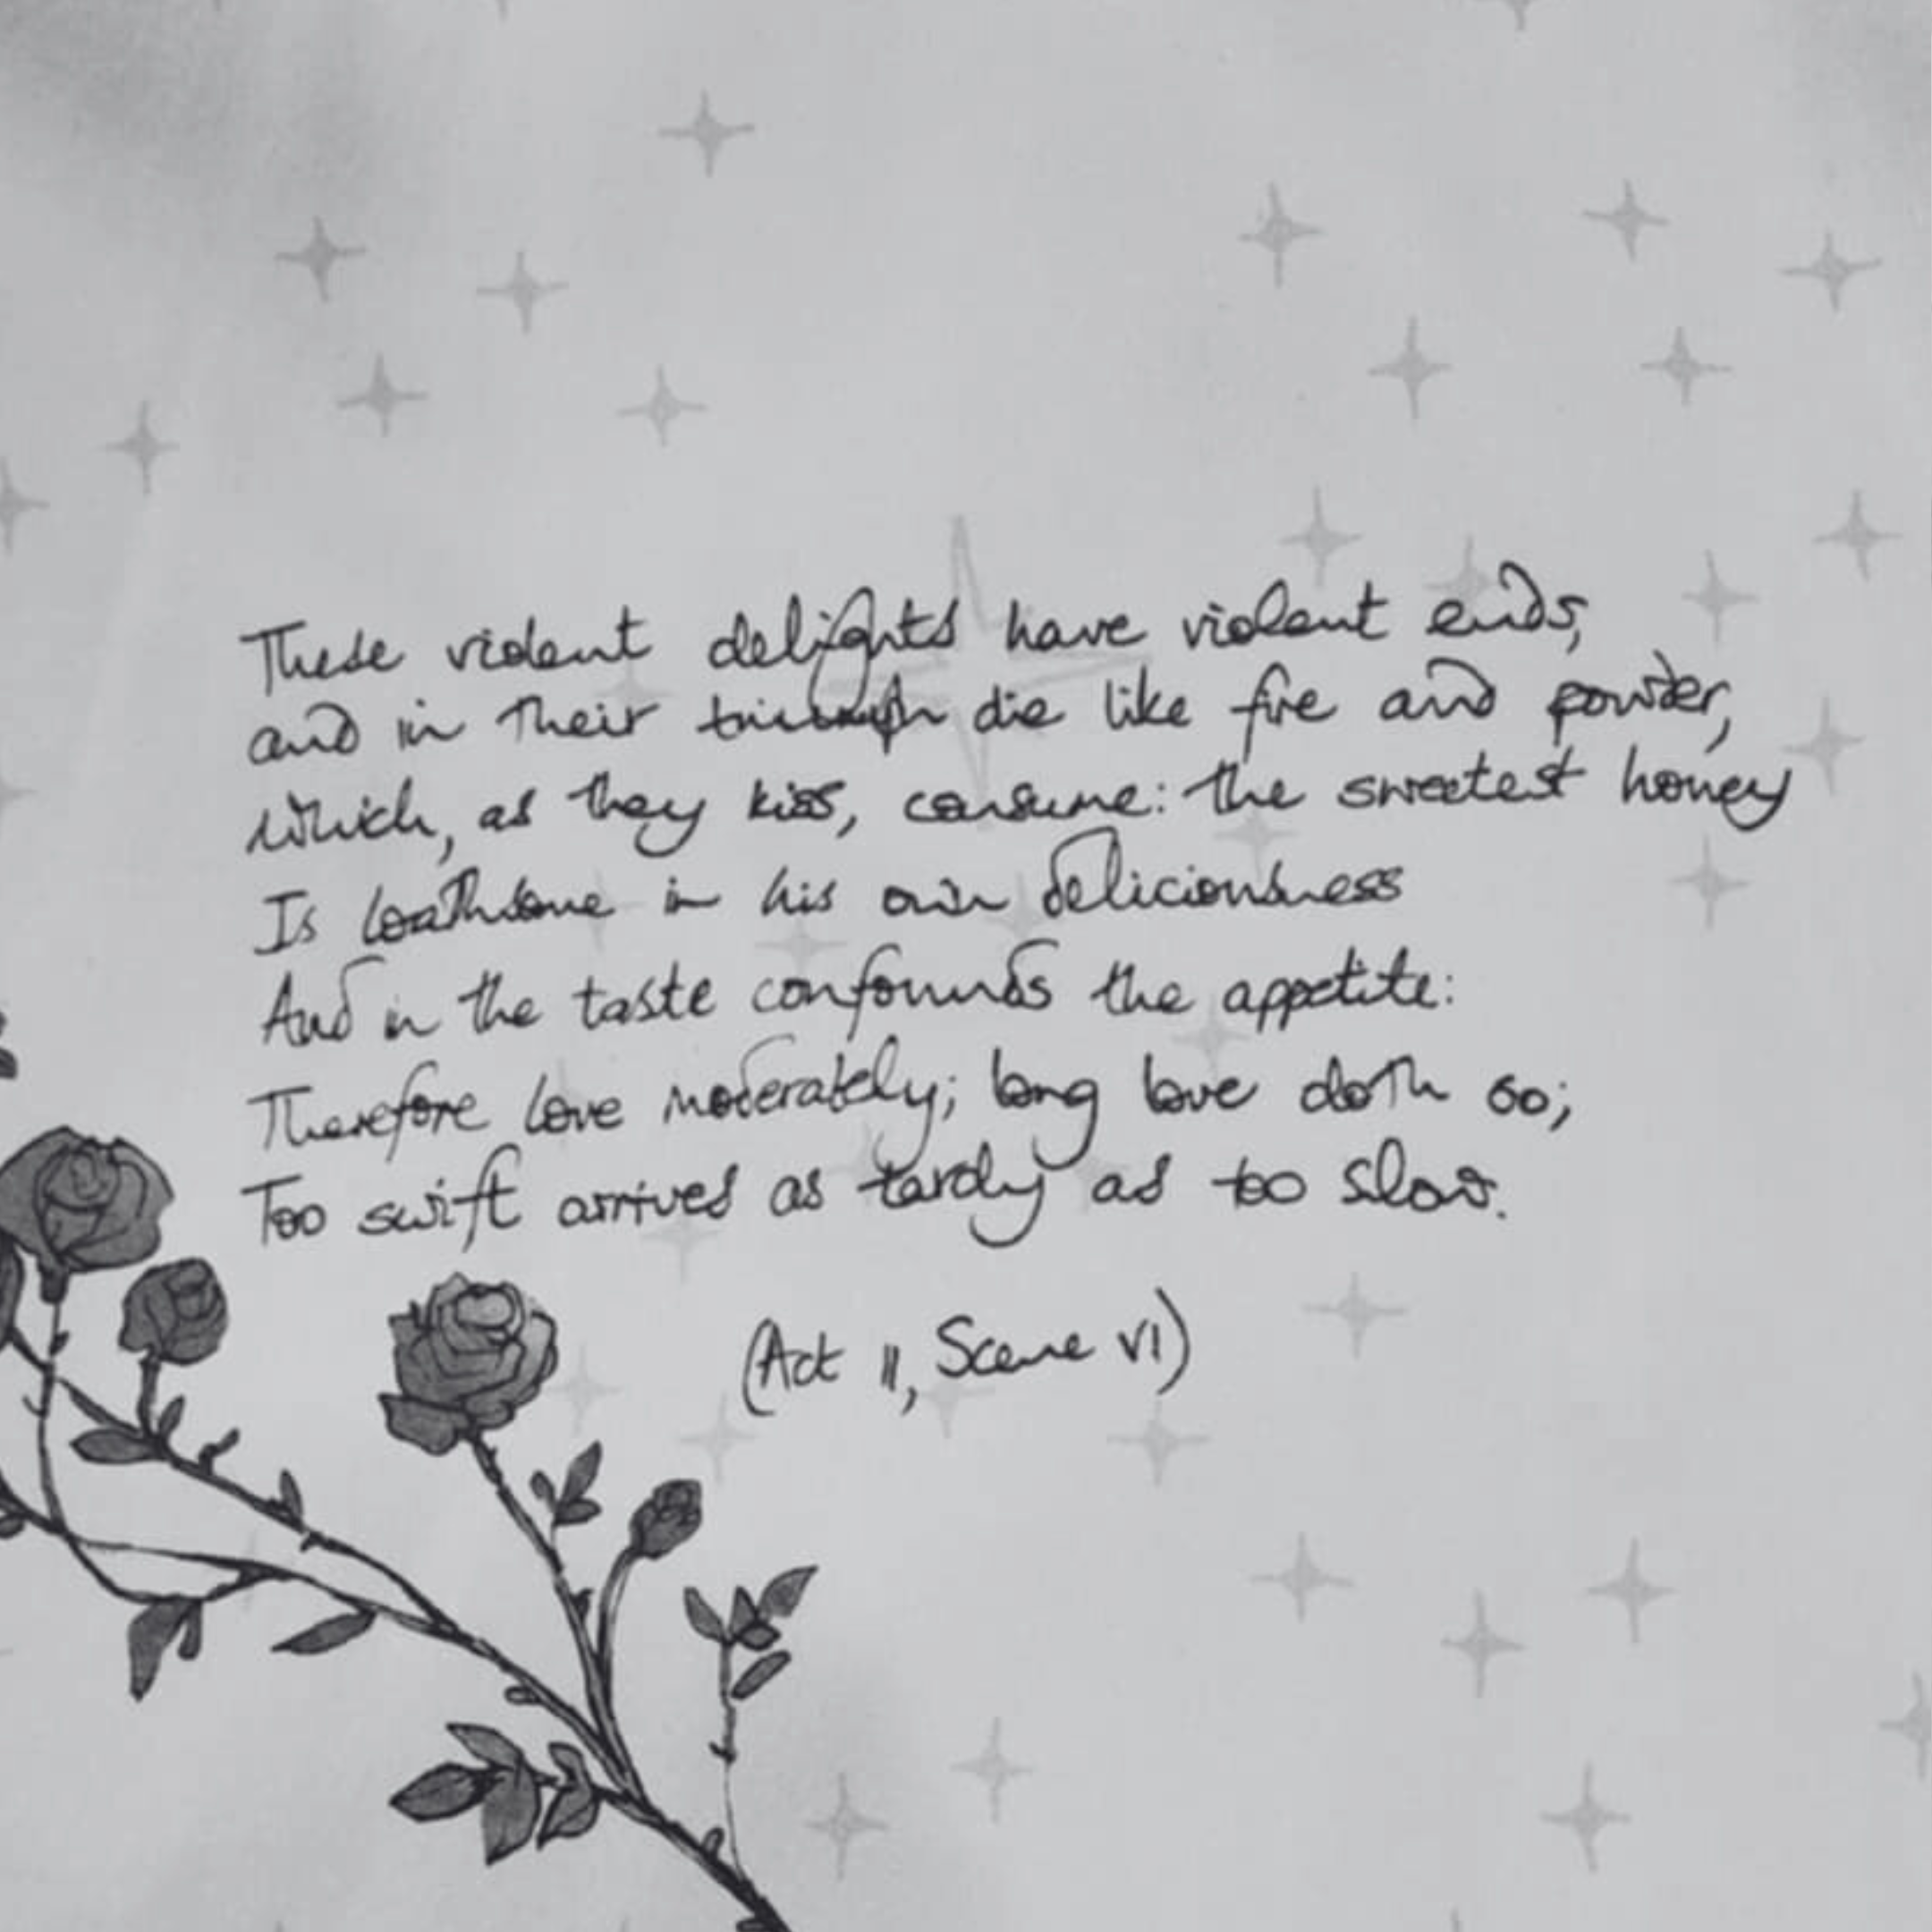 These violent delights have violent ends,
and in their triumph die like fire and powder,
which, as they kiss, consume: the sweetest honey
Is loathsome in his own deliciousness
And in the taste confounds the appetite:
Therefore love moderately; long love doth so;
Too swift arrives as tardy as too slow.
(Act II, Scene VI)